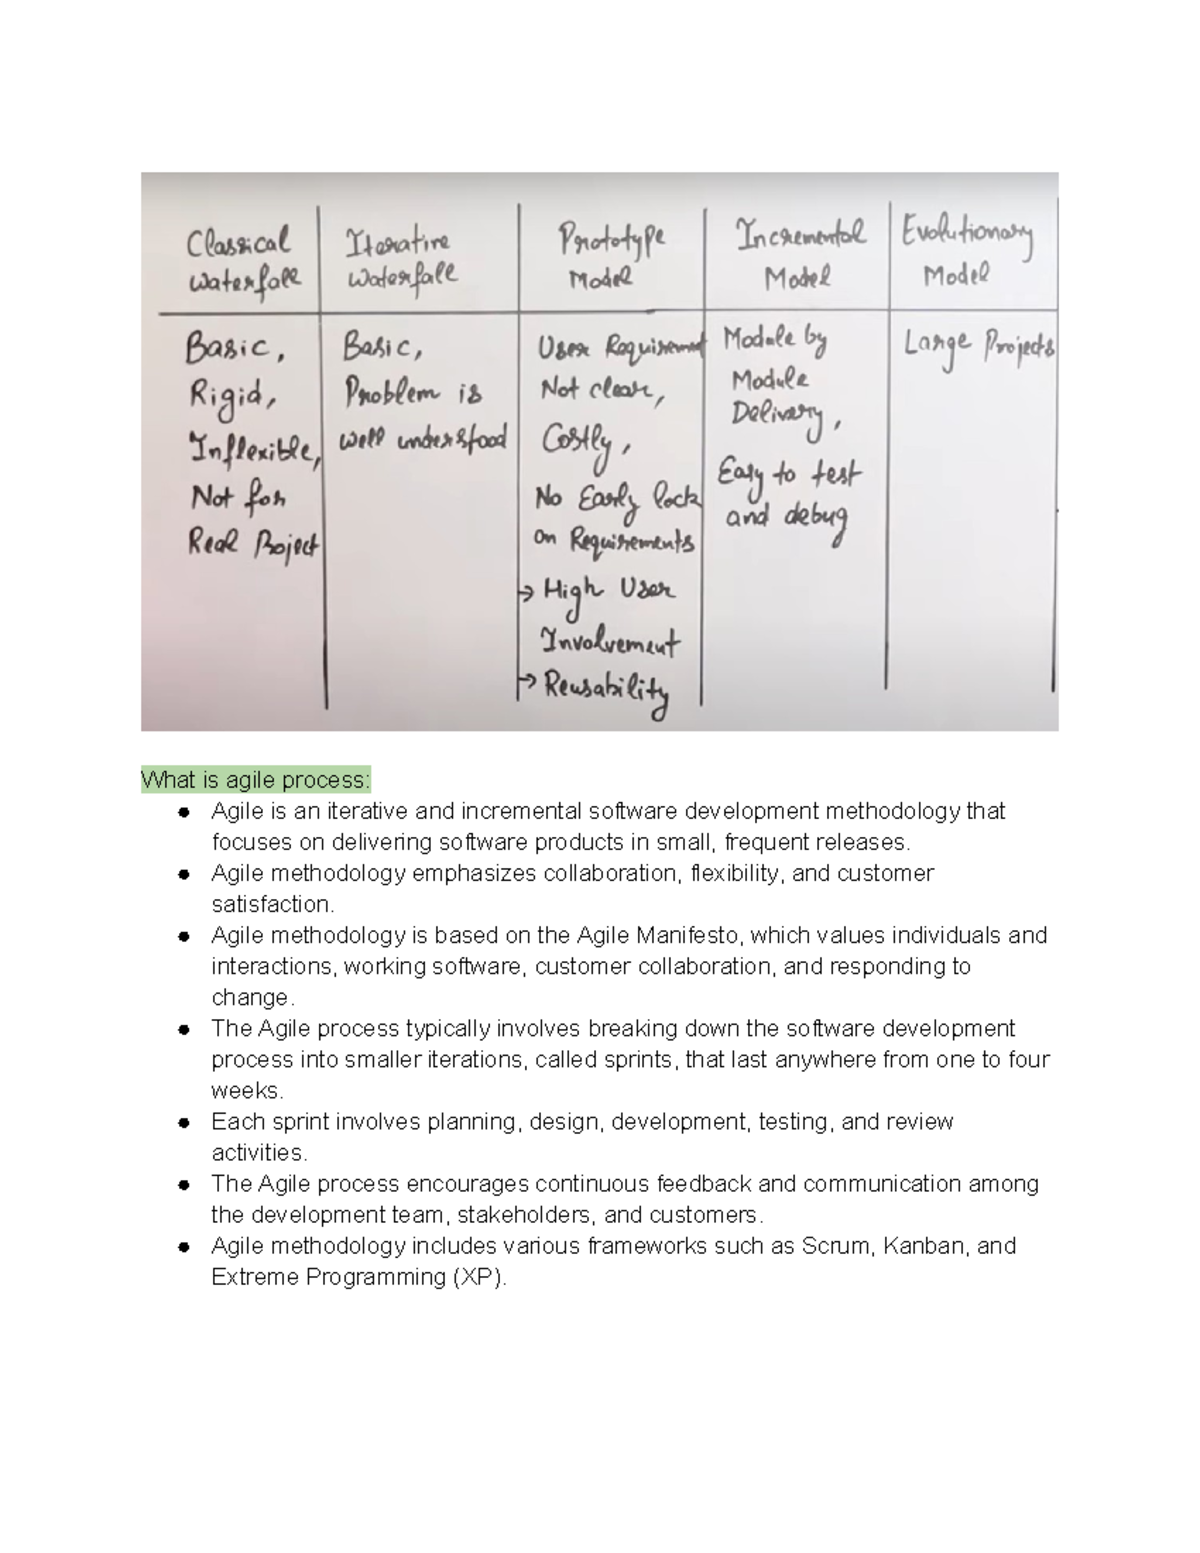 Classical Waterfall
Iterative Waterfall
Prototype Model
Incremental Model
Evolutionary Model
Basic,
Rigid,
Inflexible,
Not for
Real Project
Basic,
Problem is
well understood
User Requirement
Not clear,
Costly,
No Early lock
on Requirements
→ High User
Involvement
→ Reusability
Module by
Module
Delivery,
Easy to test
and debug
Large Projects
What is agile process:
● Agile is an iterative and incremental software development methodology that
focuses on delivering software products in small, frequent releases.
● Agile methodology emphasizes collaboration, flexibility, and customer
satisfaction.
● Agile methodology is based on the Agile Manifesto, which values individuals and
interactions, working software, customer collaboration, and responding to
change.
● The Agile process typically involves breaking down the software development
process into smaller iterations, called sprints, that last anywhere from one to four
weeks.
● Each sprint involves planning, design, development, testing, and review
activities.
● The Agile process encourages continuous feedback and communication among
the development team, stakeholders, and customers.
● Agile methodology includes various frameworks such as Scrum, Kanban, and
Extreme Programming (XP).